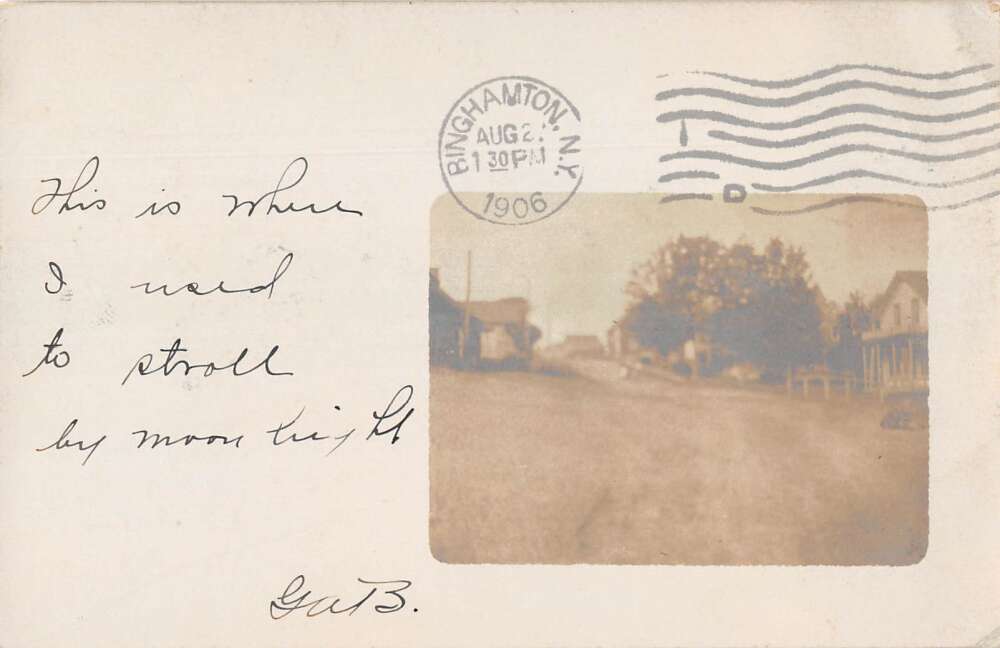 BINGHAMTON, N.Y.
AUG 2
1 30 PM
1906
D
This is where
I used
to stroll
by moon light